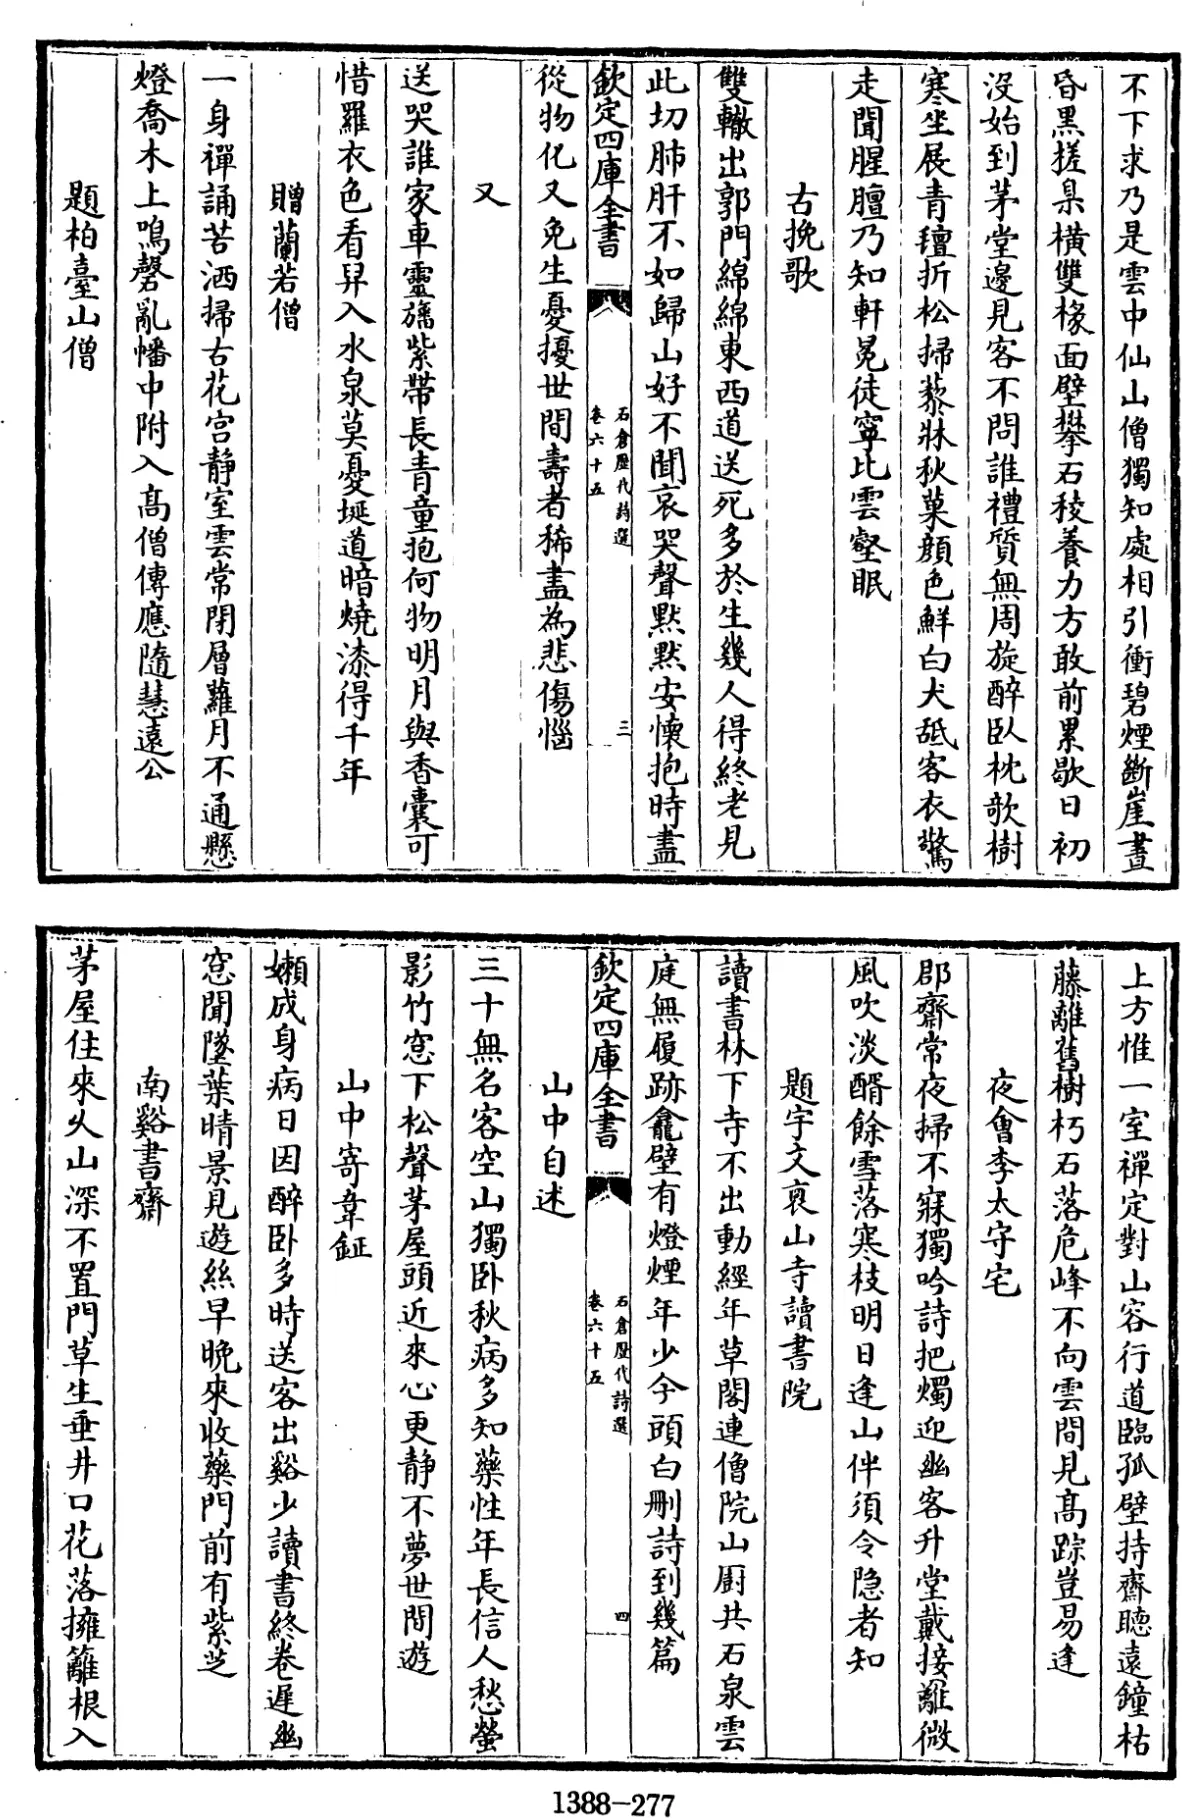 不下求乃是雲中仙山僧獨知處相引衝碧煙斷崖晝
昏黒搓臬橫雙椽面壁攀石稜養力方敢前累歇日初
没始到茅堂邊見客不問誰禮質無周旋醉臥枕欹樹
寒坐展青氊折松掃藜牀秋菓顔色鮮白犬䑛客衣驚
走聞腥羶乃知軒冕徒寧比雲壑眠
古挽歌
雙轍出郭門綿綿東西道送死多於生幾人得終老見
此切肺肝不如歸山好不聞哀哭聲默默安懷抱時盡
欽定四庫全書
石倉歷代詩選
卷六十五
三
從物化又免生憂擾世間壽者稀盡為悲傷惱
又
送哭誰家車靈旛紫帶長青童抱何物明月與香囊可
惜羅衣色看舁入水泉莫憂埏道暗燒漆得千年
贈蘭若僧
一身禪誦苦洒掃古花宫靜室雲常閉層蘿月不通懸
燈喬木上鳴磬亂幡中附入高僧傳應隨慧遠公
題柏臺山僧
上方惟一室禪定對山容行道臨孤壁持齋聽遠鐘枯
藤離舊樹朽石落危峰不向雲間見高踪豈易逢
夜會李太守宅
郡齋常夜掃不寐獨吟詩把燭迎幽客升堂戴接䍦微
風吹淡醑餘雪落寒枝明日逢山伴須令隐者知
題宇文裒山寺讀書院
讀書林下寺不出動經年草閣連僧院山厨共石泉雲
庭無履跡龕壁有燈煙年少今頭白刪詩到幾篇
欽定四庫全書
石倉歷代詩選
卷六十五
四
山中自述
三十無名客空山獨卧秋病多知藥性年長信人愁螢
影竹窓下松聲茅屋頭近來心更静不夢世間遊
山中寄韋鉦
嬾成身病日因醉卧多時送客出谿少讀書終卷遲幽
窓聞墜葉晴景見遊絲早晚來收藥門前有紫芝
南谿書齋
茅屋住來久山深不置門草生垂井口花落擁籬根入
1388-277